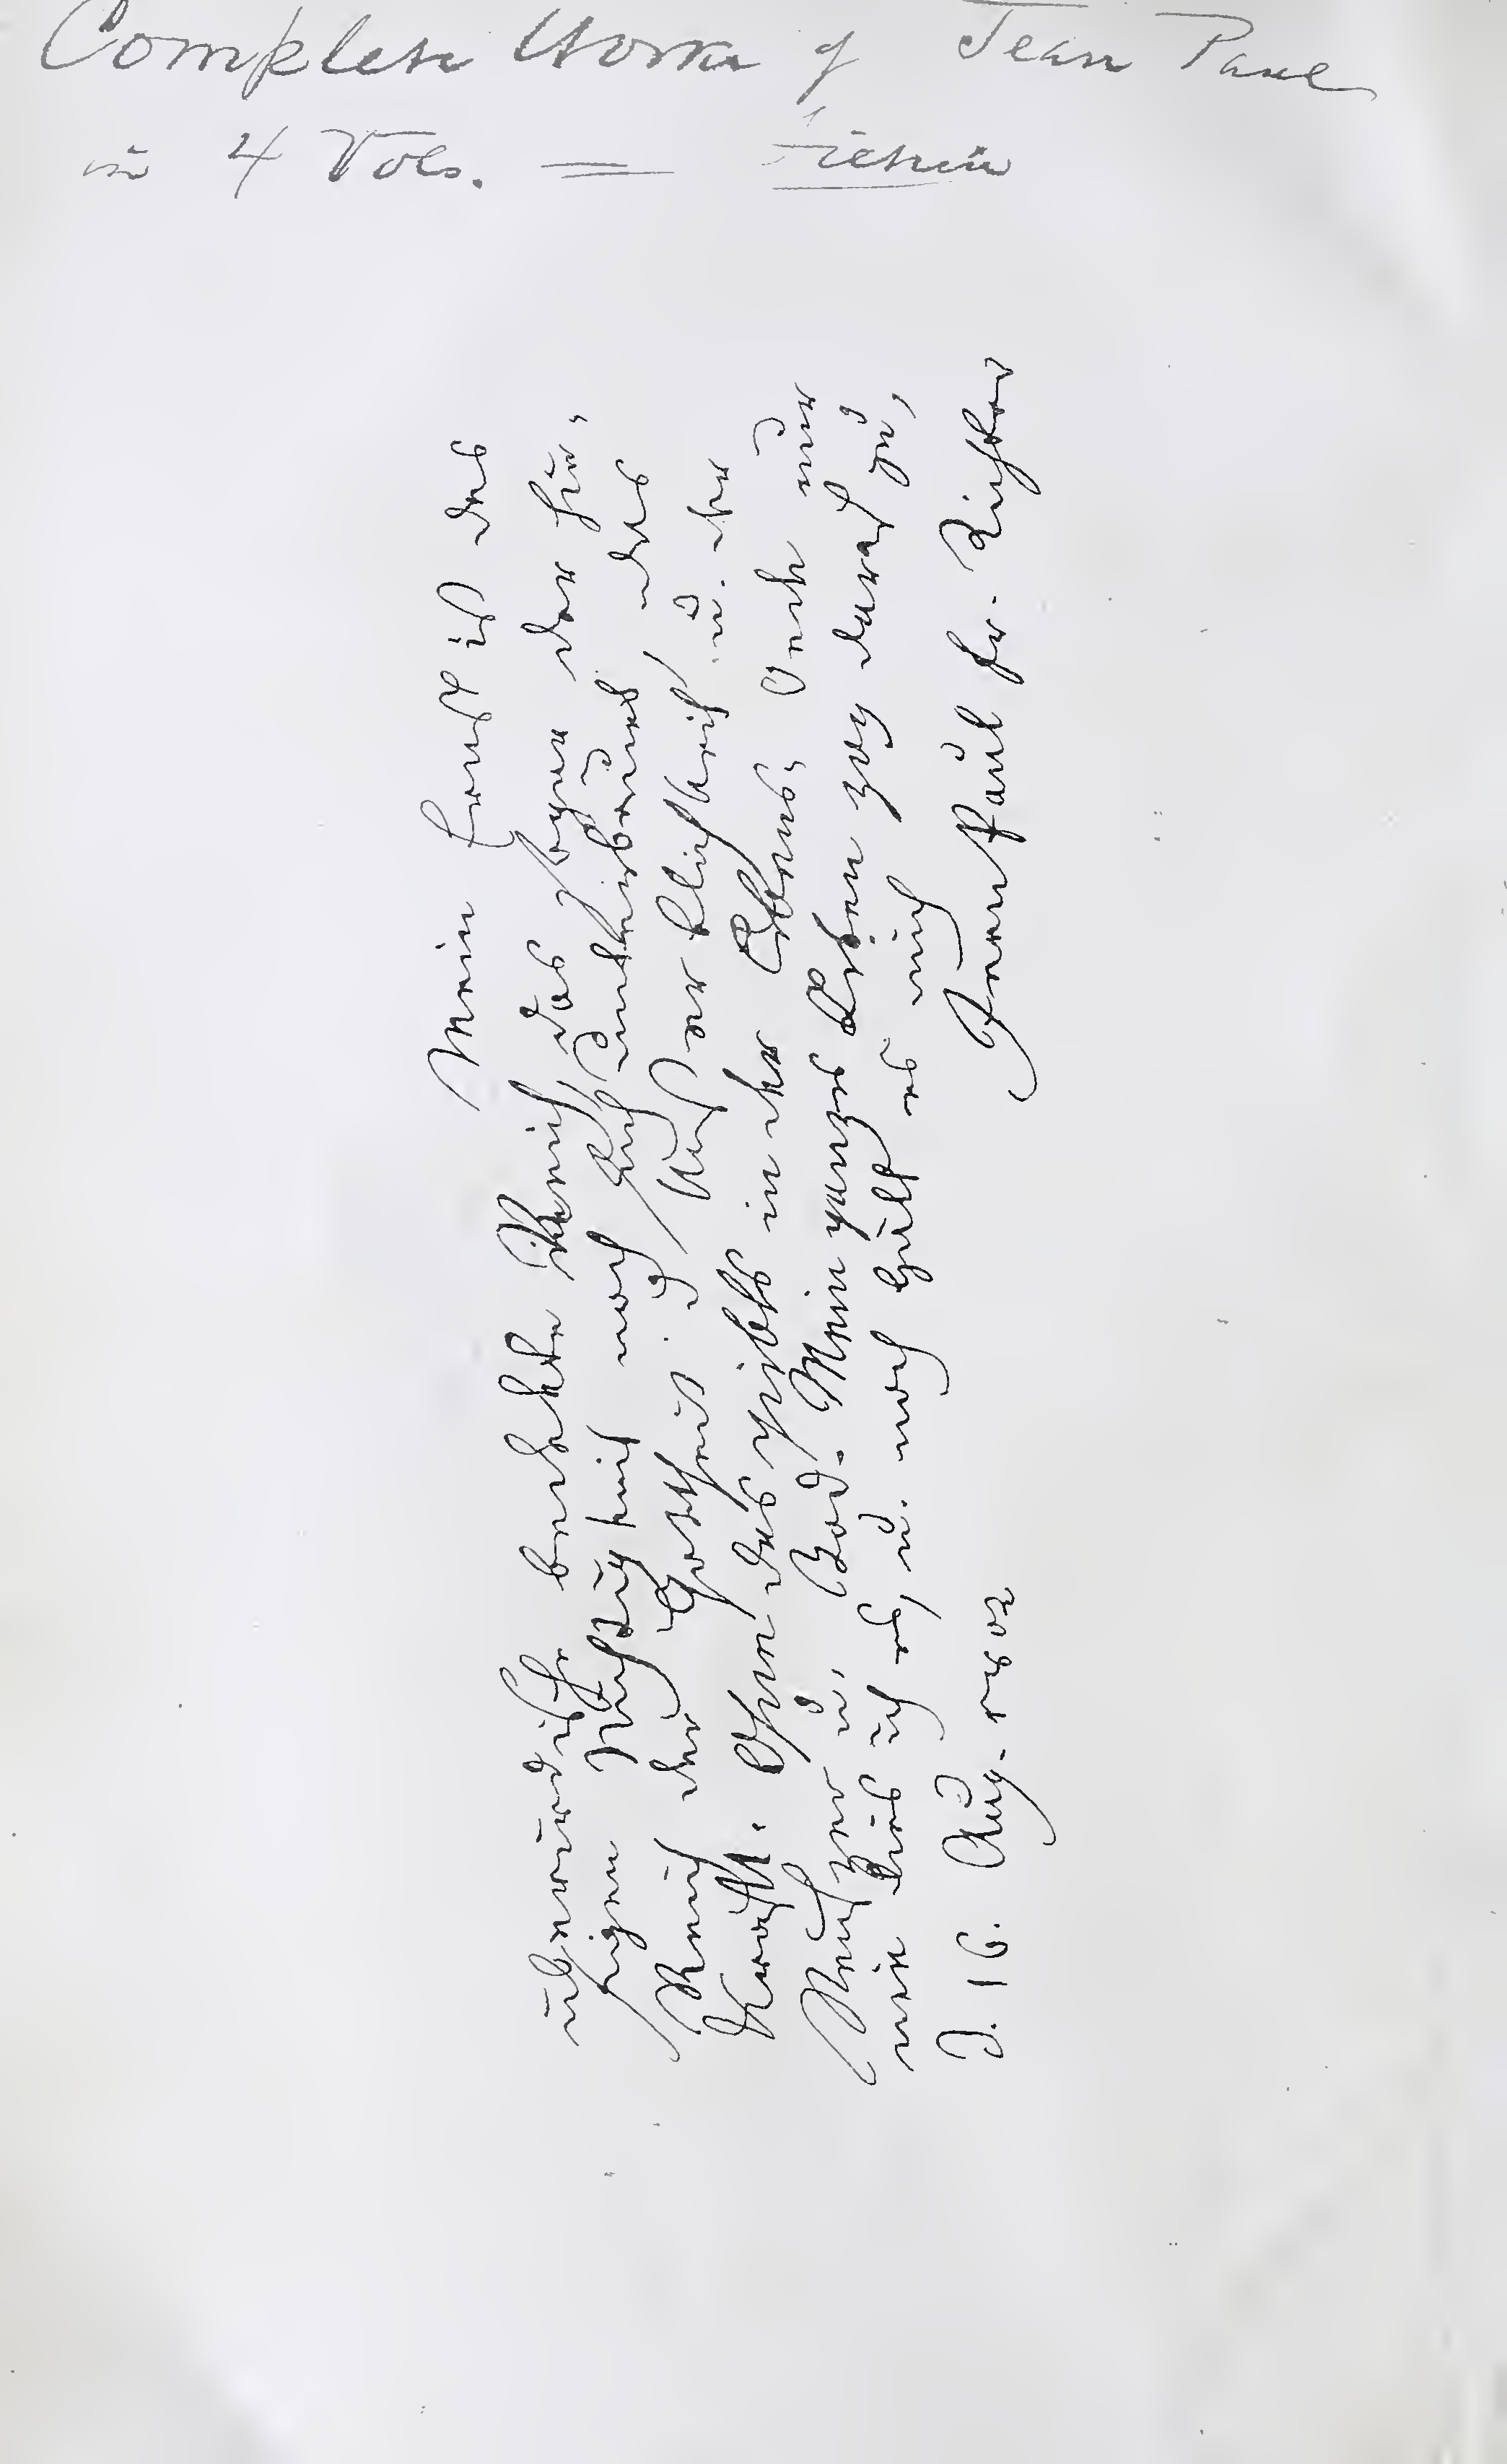 Complete Works of Jean Paul
in 4 Vols. =
Mein Ernst ist das
überirdische bedekte Reich, das sogar der hie-
sigen Nichtigkeit noch sich unterbauet, das
Reich der Gottheit u. Unsterblichkeit u. der
Kraft. Ohne das giebts in der Lebens-Oede nur
Seufzer u. Tod. Mein ganzes Leben zog darauf zu,
nie lies ich es, u. noch hält es mich
D. 16. Aug. 1802 Jean Paul Fr. Richter